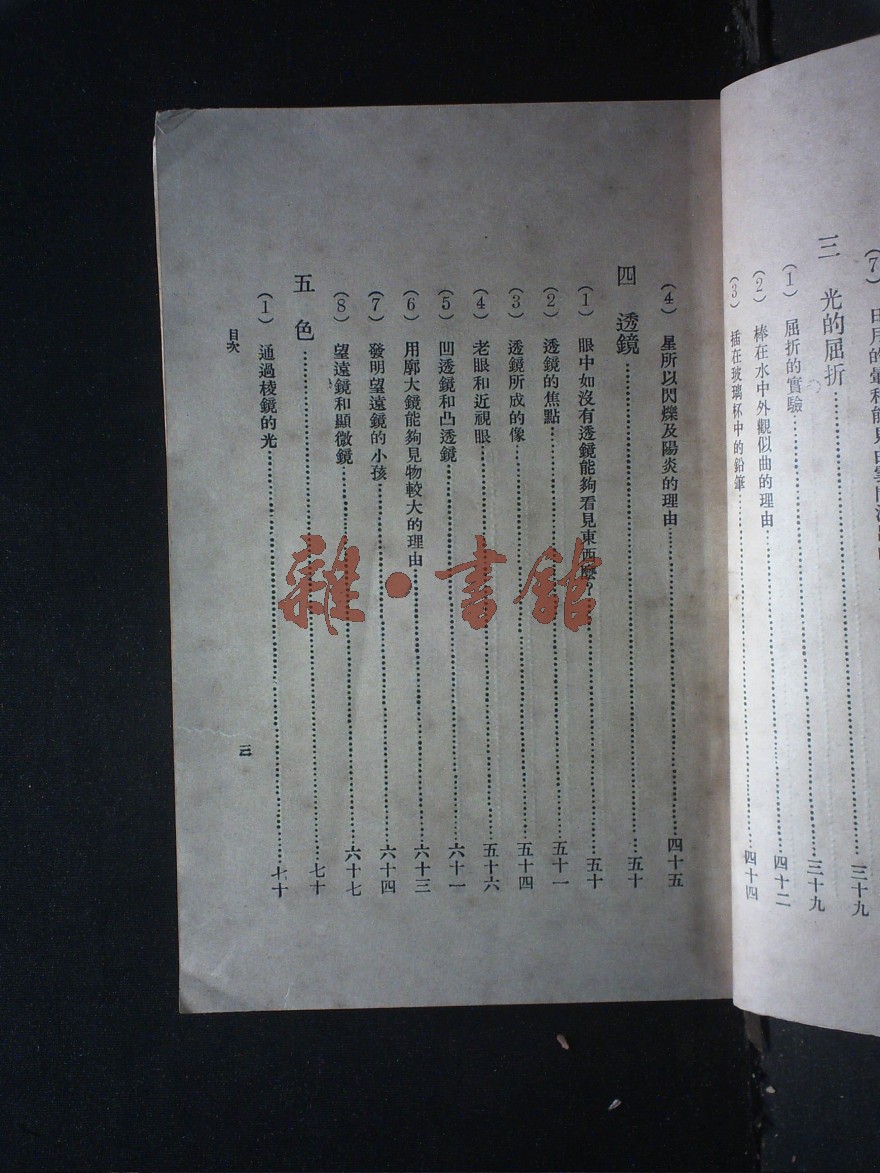 三十九
三　光的屈折……三十九
(1)　屈折的實驗……四十二
(2)　棒在水中外觀似曲的理由……四十二
(3)　插在玻璃杯中的鉛筆……四十四
(4)　星所以閃爍及陽炎的理由……四十五
四　透鏡……五十
(1)　眼中如沒有透鏡能夠看見東西麼?……五十
(2)　透鏡的焦點……五十一
(3)　透鏡所成的像……五十四
(4)　老眼和近視眼……五十六
(5)　凹透鏡和凸透鏡……六十一
(6)　用廓大鏡能夠見物較大的理由……六十三
(7)　發明望遠鏡的小孩……六十四
(8)　望遠鏡和顯微鏡……六十七
五　色……七十
(1)　通過棱鏡的光……七十
目次
三
雜·書館